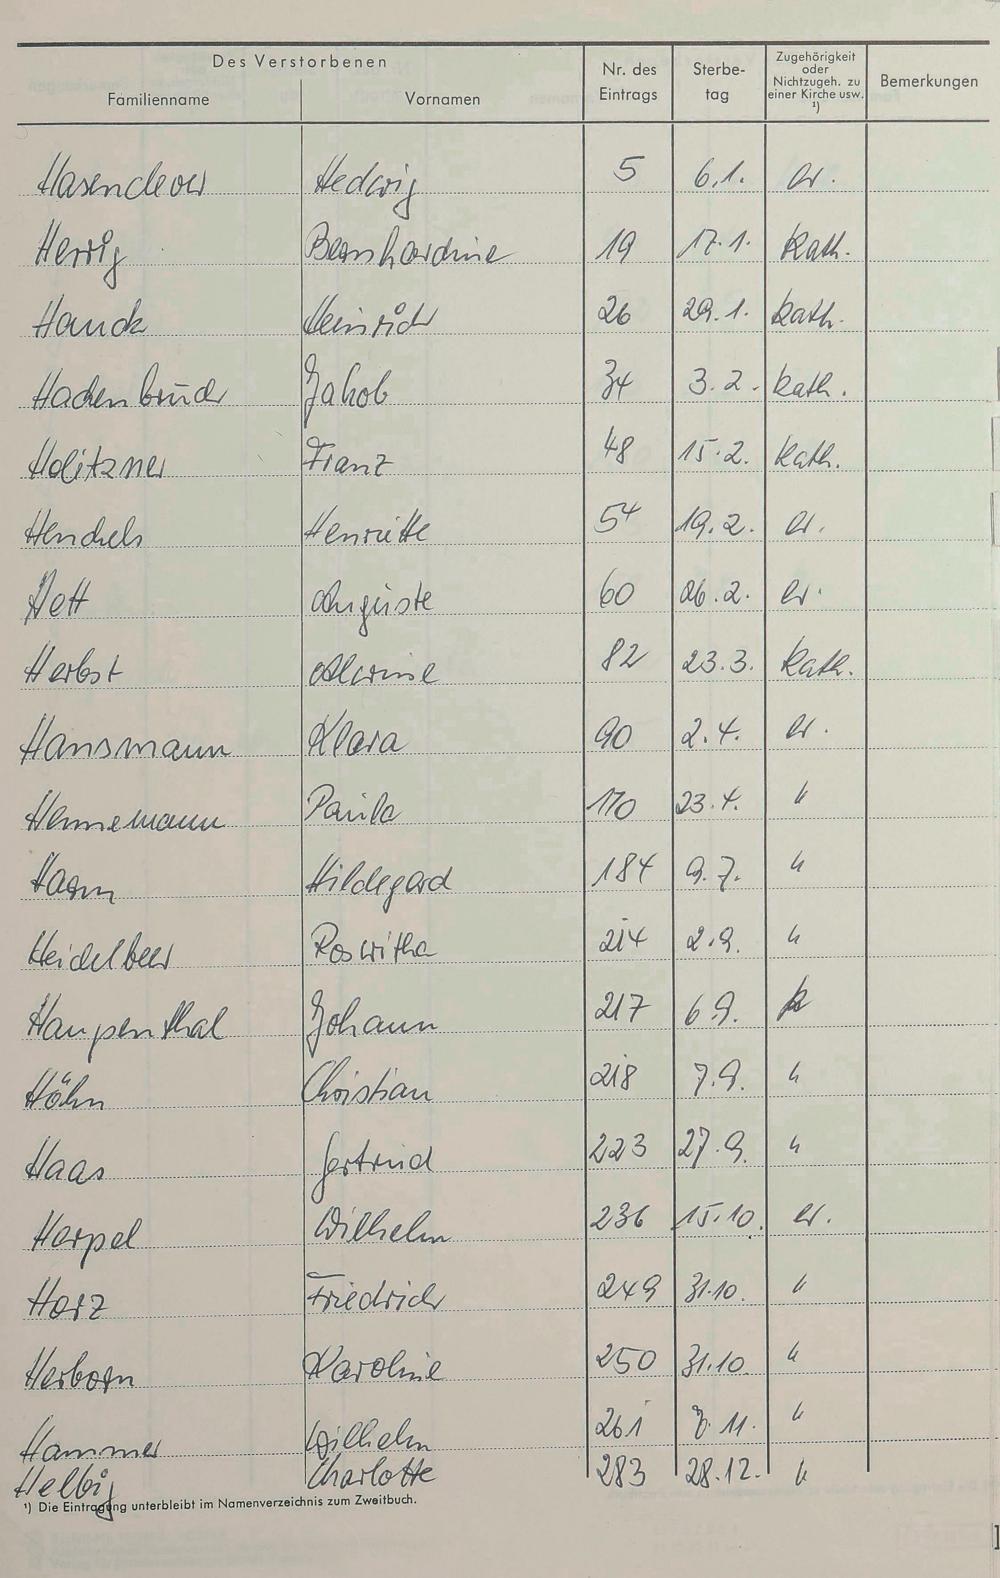 Des Verstorbenen
Familienname Vornamen Nr. des Eintrags Sterbe-tag Zugehörigkeit oder Nichtzugeh. zu einer Kirche usw. ¹) Bemerkungen
Hasenclever Hedwig 5 6.1. ev.
Herrig Bernhardine 19 17.1. kath.
Hauck Heinrich 26 29.1. kath.
Hachenbruch Jakob 34 3.2. kath.
Holitzner Franz 48 15.2. kath.
Henckels Henriette 54 19.2. ev.
Hett Auguste 60 26.2. ev.
Herbst Alwine 82 23.3. kath.
Hansmann Klara 90 2.4. ev.
Hennemann Paula 110 23.4. "
Harm Hildegard 184 9.7. "
Heidelbeer Roswitha 214 2.9. "
Haupenthal Johann 217 6 9. k
Höhn Christian 218 7.9. "
Haas Gertrud 223 27.9. "
Harpel Wilhelm 236 15.10. ev.
Harz Friedrich 249 31.10. "
Herborn Karoline 250 31.10. "
Hammer Wilhelm 261 11. "
Helbig Charlotte 283 28.12. "
¹) Die Eintragung unterbleibt im Namenverzeichnis zum Zweitbuch.